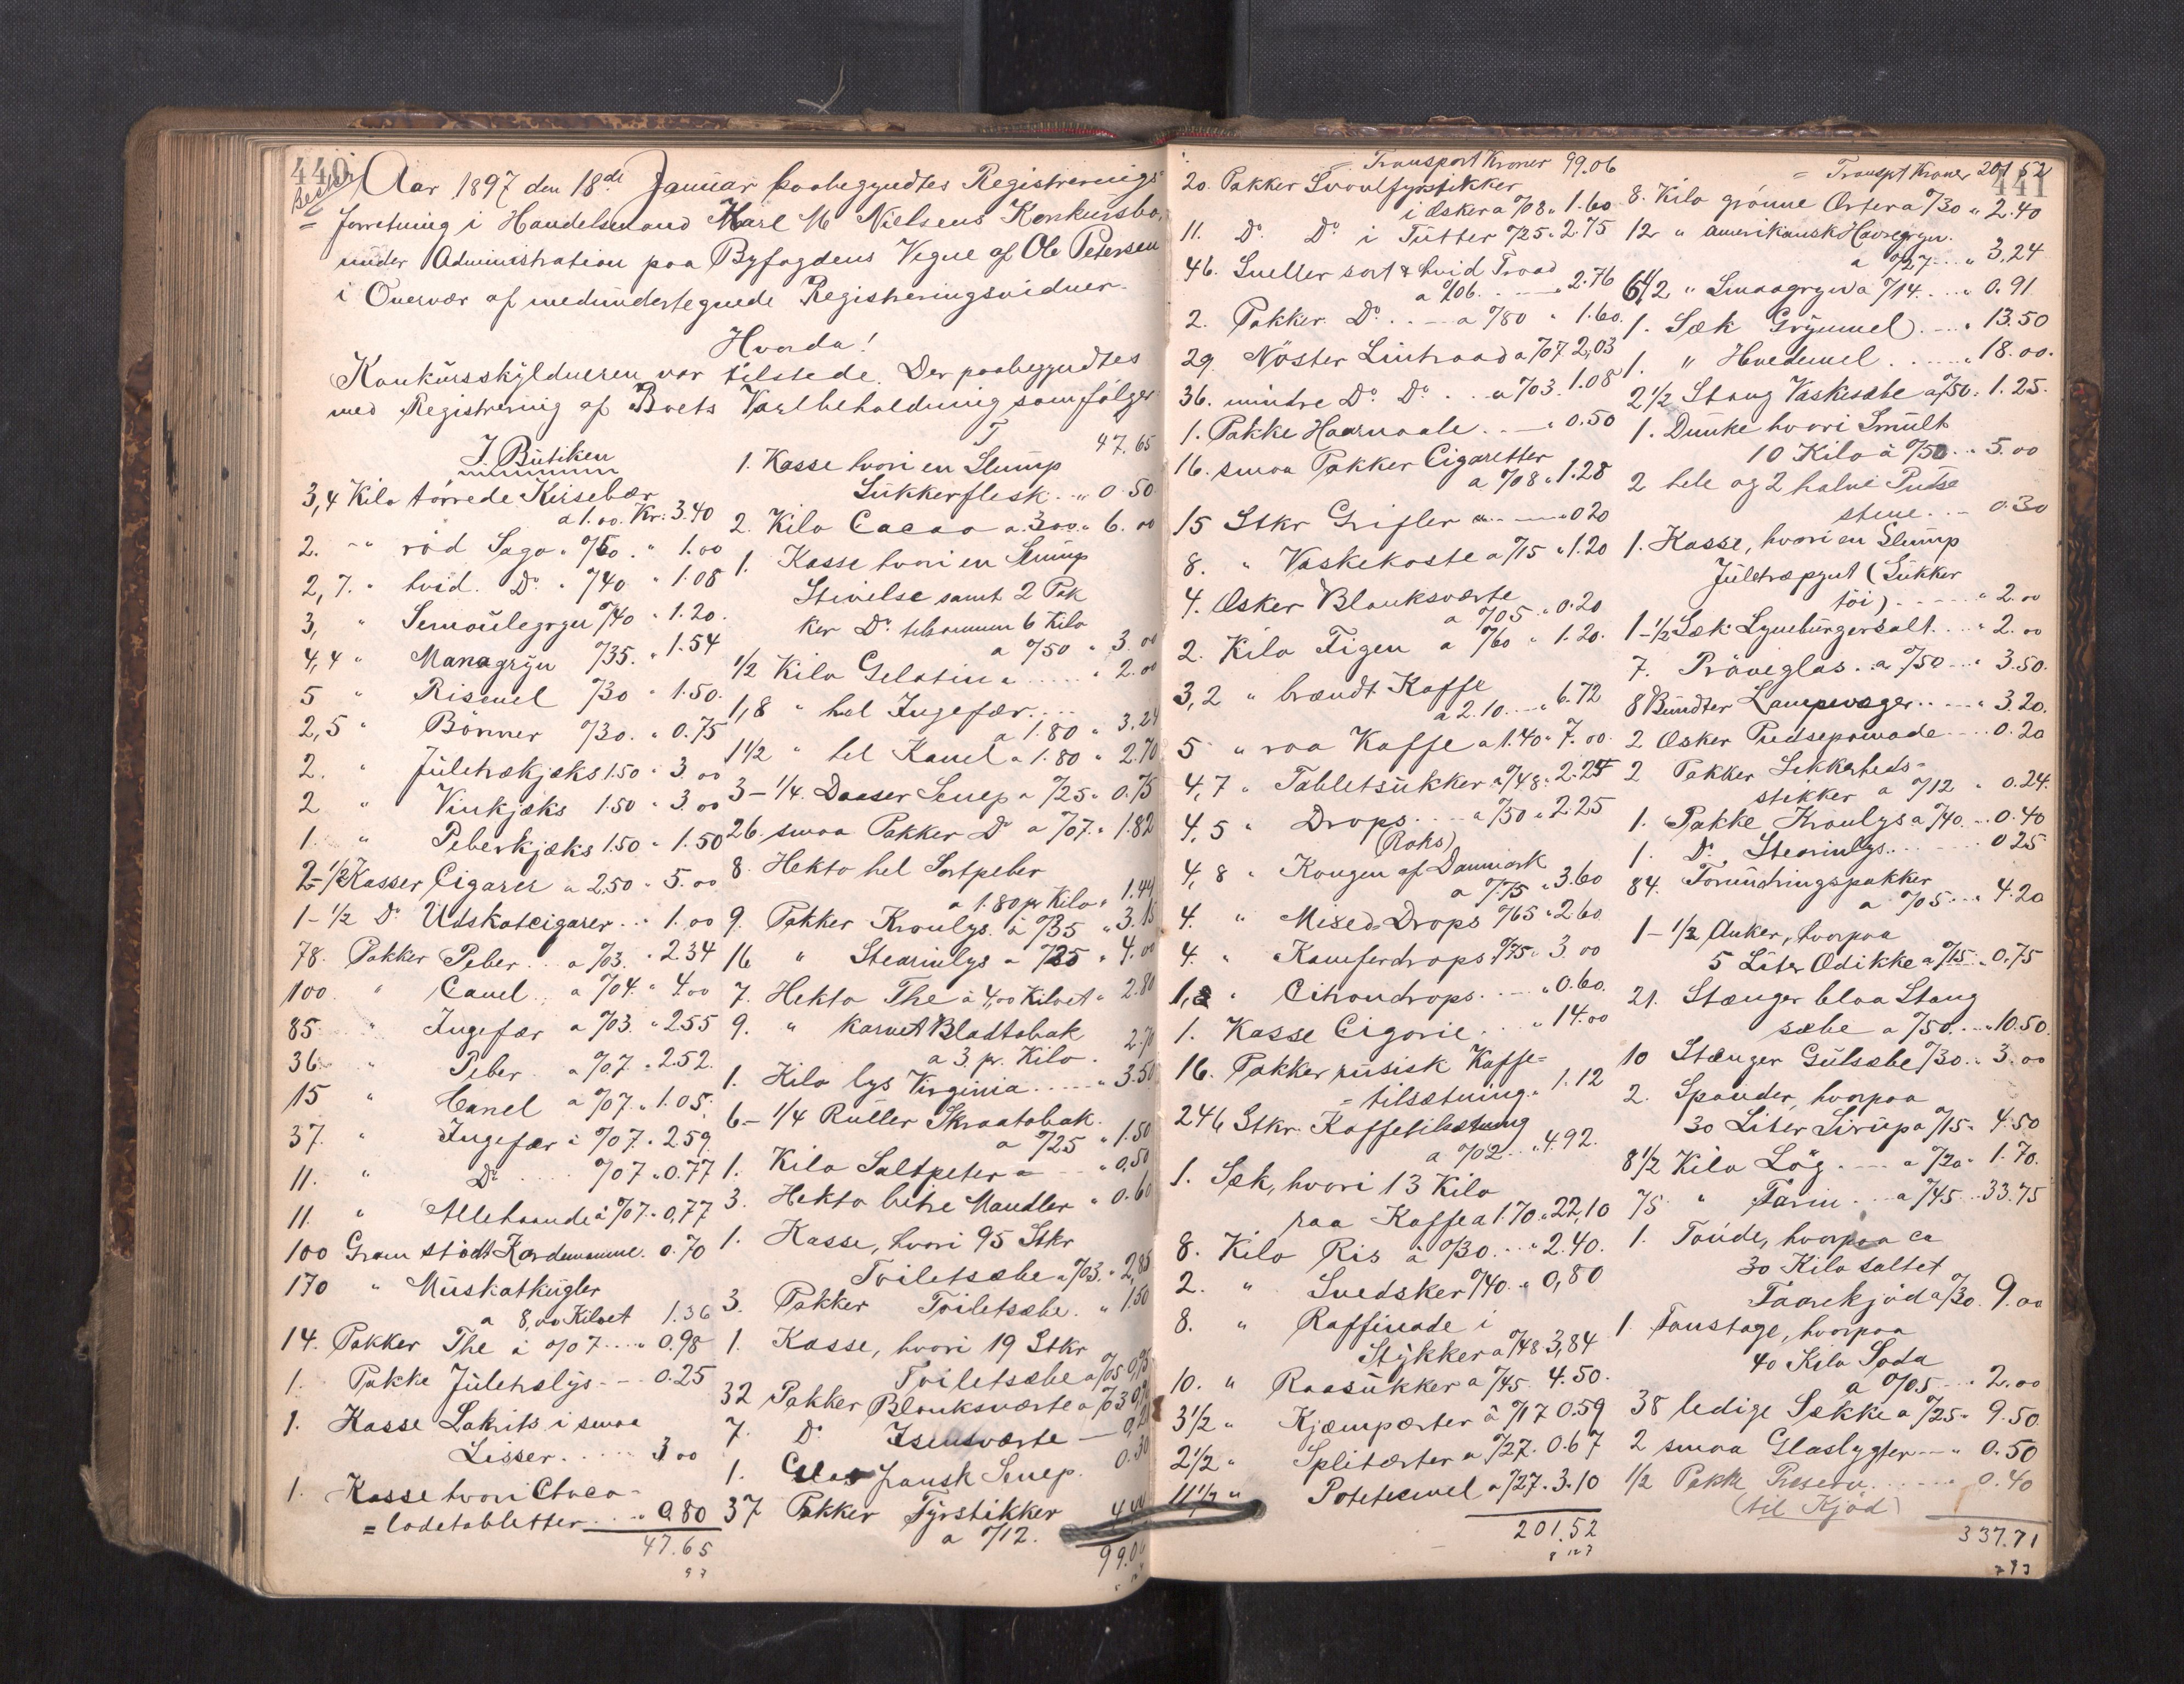 440
Aar 1897 den 18de Januar paabegyndtes Registrerings=
= forretning i Handelsmand Karl M Nielsens Konkursbo,
under Administration paa Byfogdens Vegne af Ole Petersen
i Overvær af medundertegnede Registreringsvidner.
Hvorda!
Konkursskyldneren var tilstede. Der paabegyndtes
med Registrering af Boets Varebeholdning som følger
I. Butiken
3,4 Kilo tørrede Kirsebær
a 1.00. Kr. 3.40
2. " rød Sago " %50 " 1.00
2,7. " hvid. Do " %40 " 1.08
3, " Semoulegryn %40 " 1.20.
4,4 " Managryn %35. " 1.54
5 " Rismel %30 " 1.50.
2,5 " Bønner %30. " 0.75
2. " Juletrækjæks 1.50 " 3.00
2 " Vinkjæks 1.50 " 3.00
1. " Peberkjæks 1.50 " 1.50
2-1/2 Kasser Cigarer a 2.50 " 5.00
1-1/2 Do Udskotcigarer .. " 1.00
78. Pakker Peber .. a %03. " 2.34
100. " Canel .. a %04. " 4.00
85. " Ingefær a %03. " 2.55
36. " Peber a %07. " 2.52.
15 " Canel a %07. " 1.05.
37. " Ingefær a %07. " 2.59.
11. " Do .... %07 " 0.77
11. " Allehaande a %07. " 0,77
100 Gram stødt Kardemomme. 0.70
170 " Muskatkugler
a 8,00 Kiloet 1.36
14. Pakker The a %07 .... " 0.98
1. Pakke Juletrælys - - 0.25
1. Kasse Lakrits i smaa
Lisser. .... 3.00
1. Kasse hvori Choco-
= ladetabletter ... " 0.80
47.65
T 47.65
1. Kasse hvori en Slump
Sukkerflesk .. " 0.50
2. Kilo Cacao a 3.00. " 6.00
1. Kasse hvori en Slump
Stivelse samt 2 Pak
ker Do tilsammen 6 Kilo
a %50 " 3.00
1/2 Kilo Gelatin " ..... " 2.00
1,8 " hel Ingefær. ...
a 1.80 " 3.24
1 1/2 " hel Kanel a 1.80 " 2.70
3-1/4. Daaser Senep a %25 " 0.75
26. smaa Pakker Do a %07. " 1.82
8. Hekto hel Sortpeber
a 1.80 pr Kilo " 1.44
9. Pakker Kronlys. a %35 " 3.15
16 " Stearinlys a %25 " 4.00
7. Hekto The a 4,00 Kiloet " 2.80
9. " karvet Bladtobak
a 3 pr. Kilo. 2.70
1. Kilo lys Virginia .... " 3.50
6-1/4 Ruller Skraatobak.
a %25 " 1.50
1. Kilo Saltpeter - - " 0,50
3. Hekto bitre Mandler " 0.60
1. Kasse, hvori 95 Stkr
Toiletsæbe a %03. " 2,85
3. Pakker Toiletsæbe. " 1.50
1. Kasse, hvori 19 Stkr
Toiletsæbe a %05 0,95
32 Pakker Blanksværte a %03
7. Do Isensværte —
1. Glas fransk Senep. 0.30
37 Pakker Fyrstikker
a %12. 4.44
99.06
= Transport Kroner 99.06
20. Pakker Svovlfyrstikker
i Æsker a %08 " 1.60
11. Do Do i Tutter %25 " 2.75
46. Sneller sort & hvid Traad
a %06. .... " 2.76
2. Pakker. Do .. — a %80 " 1.60.
29. Nöster Lintraad a %07. 2,03
36. mindre Do Do . . a %03. 1.08
1. Pakke Haarnaale .. — " 0.50
16. smaa Pakker Cigaretter
a %08 " 1.28
15 Stkr Grifler .. —— " 0 20
8. " Vaskekoste a %15 " 1.20
4. Æsker Blanksværte
a %05 " 0.20
2. Kilo Figen a %60 " 1.20.
3,2 " brændt Kaffe
a 2.10. ... " 6.72
5 " raa Kaffe a 1.40 " 7.00.
4,7 " Tabletsukker a %48 " 2.25
4,5 " Drops .... a %50 " 2.25
(Roks)
4,8 " Kongen af Danmark
a %75 " 3.60
4. " Mixed Drops %65 " 2.60.
4. " Kamferdrops %75 " 3.00
1,2 " Citrondrops. .... " 0.60.
1. Kasse Cigorie .... " 14.00
16. Pakker rusisk Kaffe=
= tilsætning " 1.12
246 Stkr. Kaffetilsætning
a %02 .. " 4.92.
1. Sæk, hvori 13 Kilo
raa Kaffe a 1.70 " 22,10
8. Kilo Ris a %30. .. " 2.40.
2. " Svedsker %40 .. " 0,80
8. " Raffinade i
Stykker a %48 3,84
10. " Raasukker a %45. 4.50.
3 1/2 " Kjæmpærter a %17 0.59
2 1/2 " Splitærter a %27. 0.67
11 1/2 " Potetesmel a %27. 3.10
201.52
= Transpt Kroner 201 52
441
8. Kilo grønne Ærter a %30 " 2.40
12 " amerikansk Havregryn.
a %27 .. " 3,24
6 1/2 " Smaagryn a %14. .. " 0.91
1. Sæk Grynmel). ... " 13.50
1. " Hvedemel ..... " 18.00.
2 1/2 Stang Vaskesæbe a %50. 1.25.
1. Dunke hvori Smult
10 Kilo a %50. " 5.00
2 hele og 2 halve Pudse
stene. .. — 0.30
1. Kasse, hvori en Slump
Juletræpynt (Sukker
töi) ..... " 2.00
1-1/2 Sæk Lyneburgersalt .... " 2.00
7. Pröveglas .. a %50 ... " 3.50.
8 Bundter Lampevæger .. — " 3.20.
2 Æsker Pudsepomade ... 0.20
2 Pakker Sikkerheds=
stikker a %12 " 0.24.
1. Pakke Kronlys a %40 ... 0.40
1. Do. Stearinlys. ...... 0 25
84. Forundringspakker
a %05 ... " 4.20
1-1/2 Anker, hvorpaa
5 Liter Ædikke a %15. " 0.75
21. Stænger blaa Stang
sæbe a %50. ... " 10.50.
10 Stænger Gulsæbe %30. " 3.00
2. Spander, hvorpaa
30 Liter Sirup a %15 " 4.50
8 1/2 Kilo Løg. .... a %20 " 1.70.
75. " Farin ... a %45 .. 33.75
1. Tønde, hvorpaa ca
30 Kilo saltet
Faarekjød a %30. 9.00
1. Fanstage, hvorpaa
40 Kilo Soda
a %05 ... " 2.00
38 ledige Sække a %25 " 9.50.
2 smaa Glaslygter — " 0.50
1/2 Pakke ....... 0.40
(til Kjød)
337.71